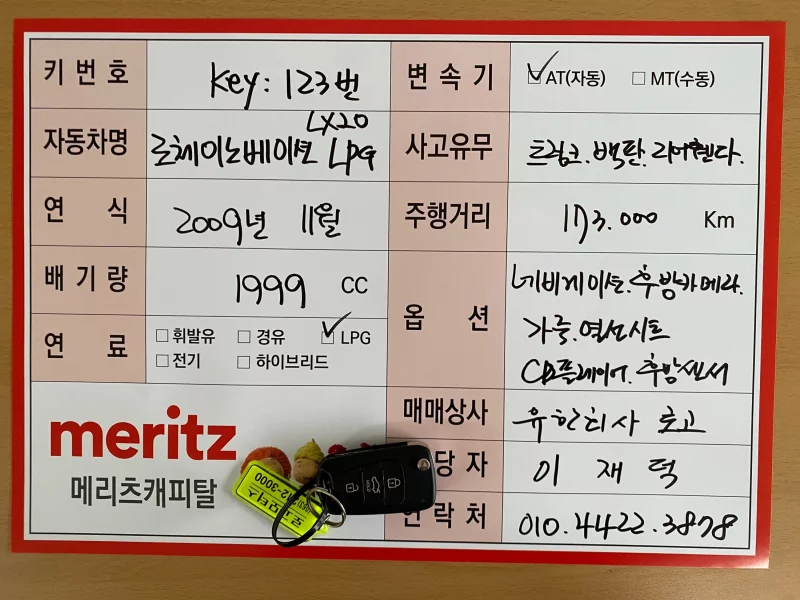 키 번 호
Key: 123번
변 속 기
AT(자동) MT(수동)
자동차명
LX20
로체이노베이션 LPG
사고유무
트렁크.백판.리어휀다.
연 식
2009년 11월
주행거리
173.000 Km
배 기 량
1999 CC
옵 션
네비게이션.후방카메라.
가죽.열선시트
CD플레이어.후방센서
연 료
휘발유 경유 LPG
전기 하이브리드
매매상사
유한회사 로고
당 자
이 재 덕
연 락 처
010.4422.3878
meritz
메리츠캐피탈
로고모터스
-3000